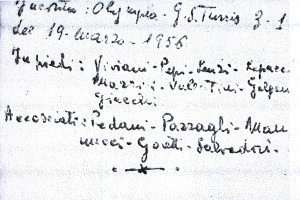 Incontro: Olympia - G.S. Turris 3-1
del 19-marzo-1956
In piedi: Viviani - Pepi - Lenzi - Lepare
Marzi - Valentini - Galgani
Giacchi
Accosciati: Pedani - Pazzagli - Man
nucci - Goetti - Salvadori.